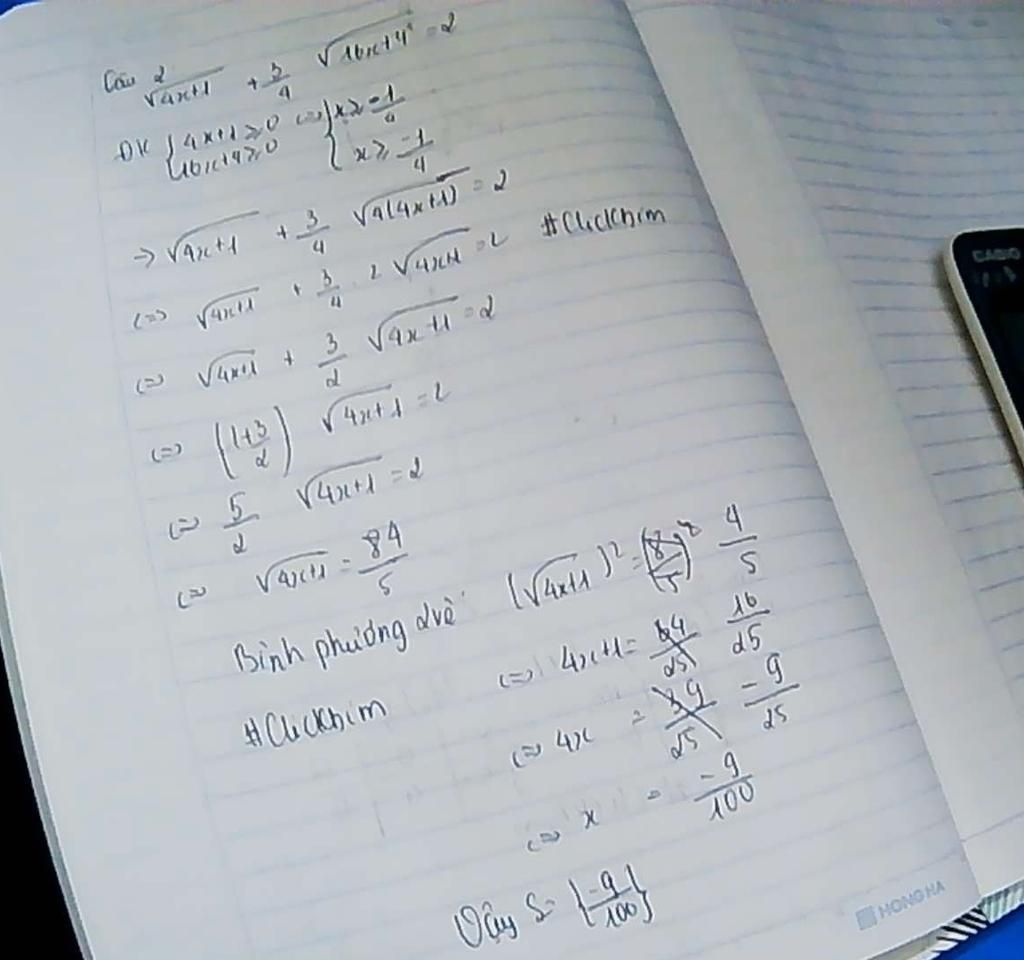 Câu 2
√4x+1 + 3/4 √16x+4 = 2
ĐK { 4x+1 ≥ 0 <=> { x ≥ -1/4
16x+4 ≥ 0 x ≥ -1/4
→ √4x+1 + 3/4 √4(4x+1) = 2
<=> √4x+1 + 3/4 . 2 √4x+1 = 2 #Clickbim
<=> √4x+1 + 3/2 √4x+1 = 2
<=> (1+3/2) √4x+1 = 2
<=> 5/2 √4x+1 = 2
<=> √4x+1 = 4/5
Bình phương 2 vế (√4x+1)² = (8/5)² 4/5
<=> 4x+1 = 64/25 16/25
#Clickbim
<=> 4x = 39/25 -9/25
<=> x = -9/100
Vậy S = {-9/100}
HONG HA
CASIO